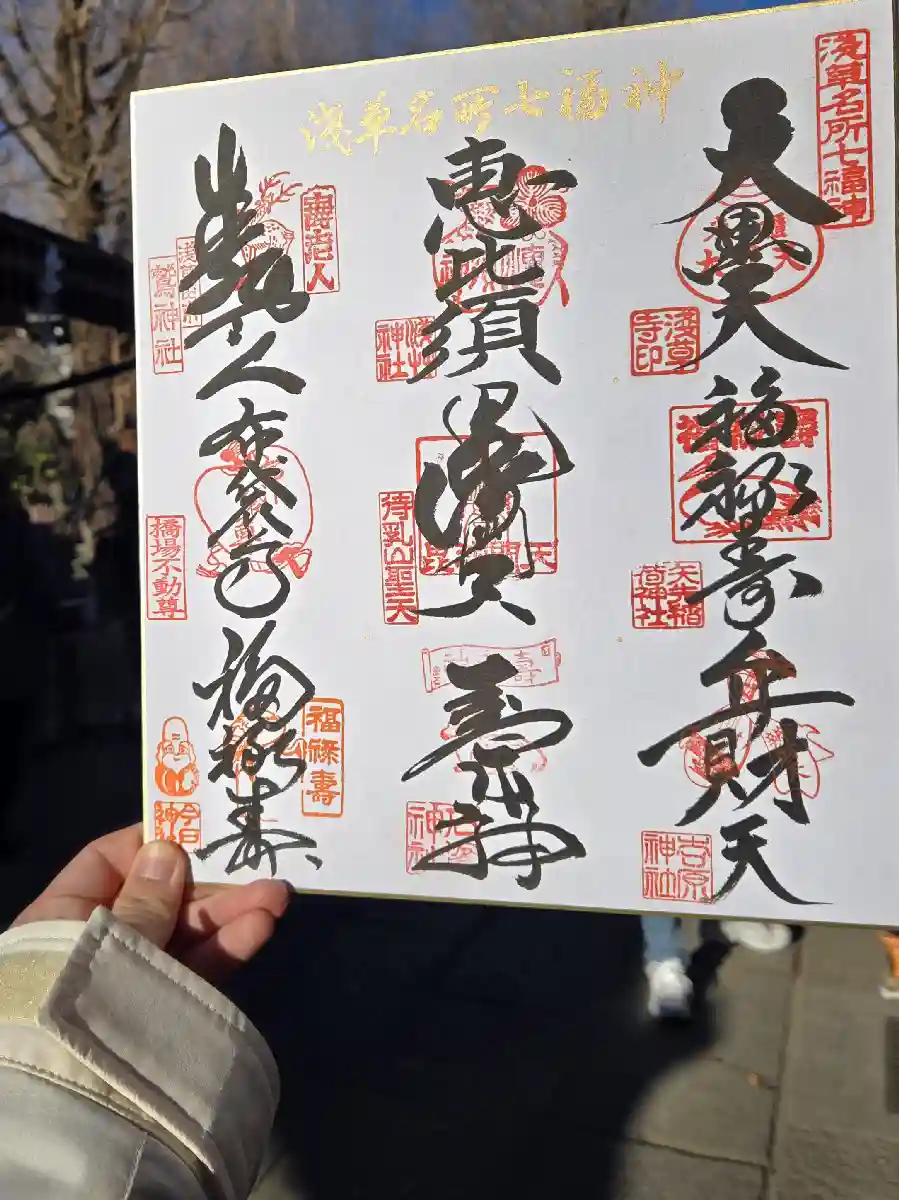 浅草名所七福神
浅草名所七福神
大黒天
浅草
寺印
福禄寿
矢先稲
荷神社
弁財天
吉原
神社
恵比須
浅草
神社
毘沙門天
待乳山聖天
寿老神
石浜
神社
寿老人
寿老人
鷲神社
布袋尊
橋場不動尊
福禄寿
福禄壽
今戸
神社